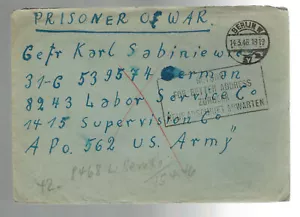 PRISONER OF WAR.
BERLIN W
Gefr Karl Sabiniewi
31-G 539574 German
8943 Labor Service Co
1415 Supervision Co
APO. 562 US. Army"
FOR BETTER ADDRESS
ABWARTEN